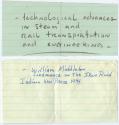 - technological advances
in steam and
rail transportation
and engineering.
- William Middleton
on The Iron Road
Indiana